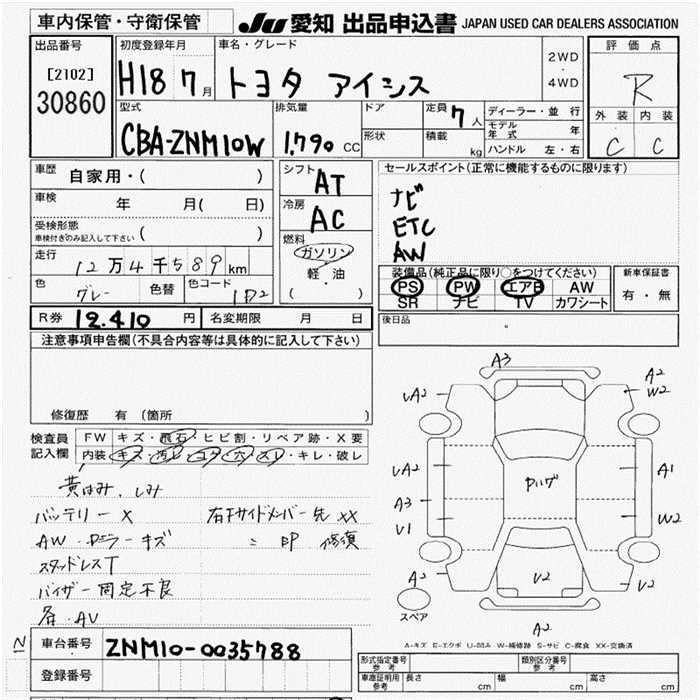 車内保管・守衛保管
JU 愛知 出品申込書 JAPAN USED CAR DEALERS ASSOCIATION
出品番号
[2102]
30860
初度登録年月
H18 7月
車名・グレード
トヨタ アイシス
2WD
・
4WD
評価点
R
外装 内装
C C
型式
CBA-ZNM10W
排気量
1.790 CC
ドア
形状
定員 7人
積載 kg
ディーラー・並行
モデル年式 年
ハンドル 左・右
車歴 自家用・( )
車検 年 月( 日)
受検形態
車検付きのみ記入して下さい ( )
走行
12万4千589km
色 グレー 色替 色コード 1D2
シフト
AT
冷房
AC
燃料
ガソリン
軽・油
( )
セールスポイント(正常に機能するものに限ります)
ナビ
ETC
AW
装備品(純正品に限り○をつけてください)
PS PW エアB AW
SR ナビ TV カワシート
新車保証書
有・無
R券 12.410 円 名変期限 月 日
後日品
注意事項申告欄(不具合内容等は具体的に記入して下さい)
修復歴 有 (箇所 )
検査員記入欄
FW キズ・飛石・ヒビ割・リペア跡・X要
内装 キズ・汚レ・コゲ・穴・スレ・キレ・破レ
黄ばみ、しみ
バッテリーX 右下サイドメンバー先 XX
AW・ミラーキズ ニ 凹 修復
スタッドレスT
バイザー固定不良
各・AV
A3
UA2
A2
W2
UA2
A1
A3
U1
W2
ハゲ
A2
U2
U2
A2
スペア
A-キズ E-エクボ U-凹み W-補修跡 S-サビ C-腐食 XX-交換済
N 車台番号 ZNM10-0035788
登録番号
形式指定番号 参考 類別区分番号 参考
車庫証明用 参考 長さ cm 幅 cm 高さ cm